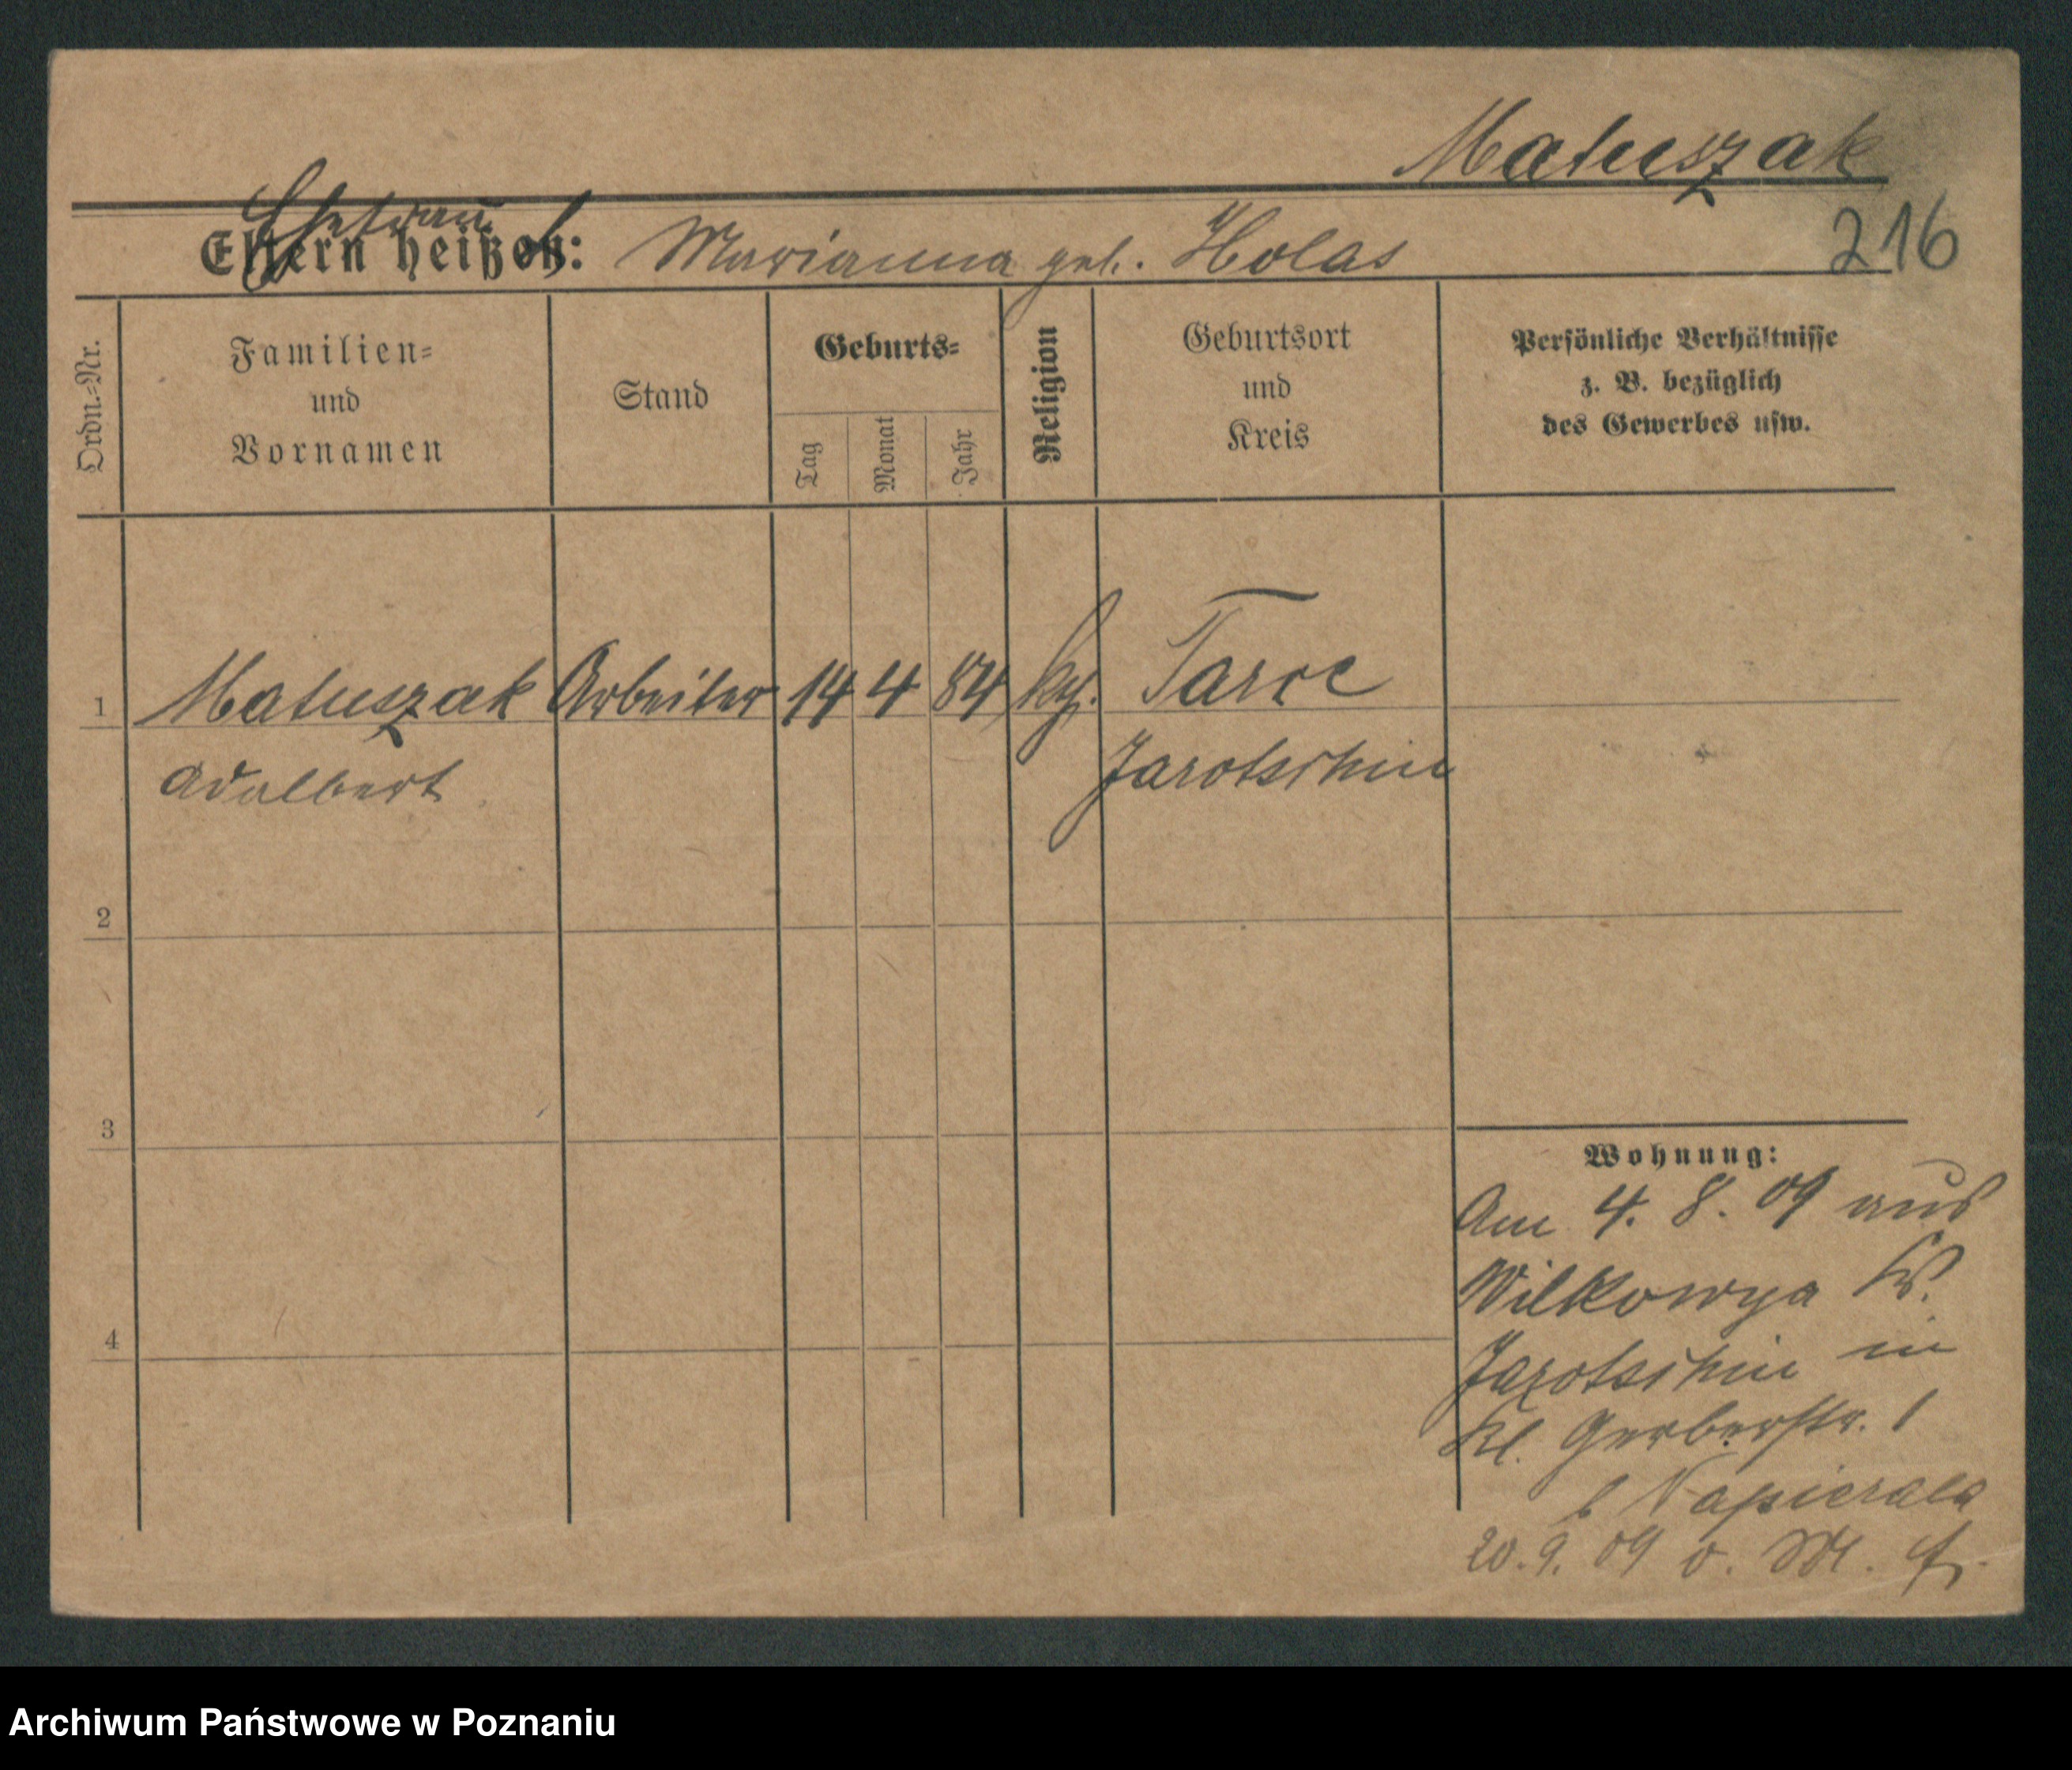 Matuszak
216
Ehefrau
Eltern heißen: Marianna geb. Holas
Ordn.-Nr.
Familien-
und
Vornamen
Stand
Geburts-
Tag
Monat
Jahr
Religion
Geburtsort
und
Kreis
Persönliche Verhältnisse
z. B. bezüglich
des Gewerbes usw.
1 Matuszak Arbeiter 14 4 84 kth. Tarce
Adalbert Jarotschin
2
3
4
Wohnung:
Am 4. 8. 09 aus
Wilkowya Kr.
Jarotschin in
Kl. Gerberstr. 1
b Napierala
20. 9. 09 v. M.
Archiwum Państwowe w Poznaniu